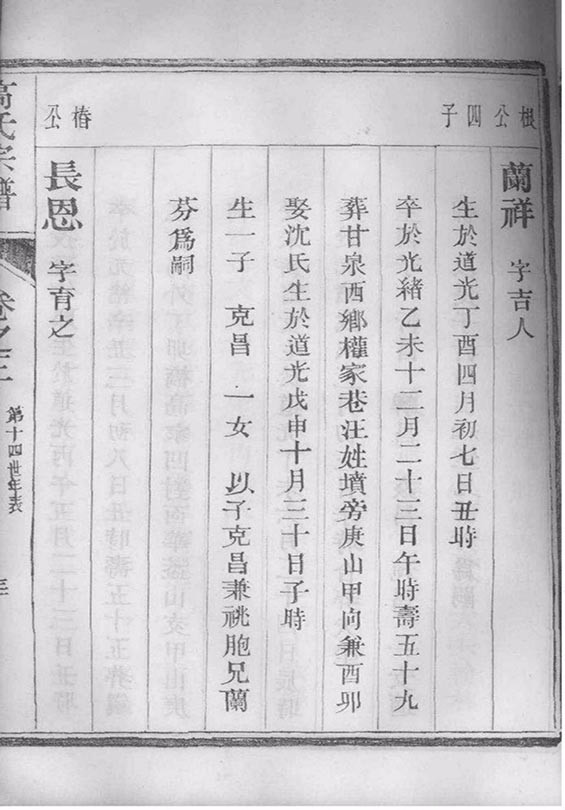 根公四子
蘭祥 字吉人
生於道光丁酉四月初七日丑時
卒於光緒乙未十二月二十三日午時壽五十九
葬甘泉西鄉權家巷汪姓墳旁庚山甲向兼酉卯
娶沈氏生於道光戊申十月三十日子時
生一子 克昌 一女 以子克昌兼祧胞兄蘭
芬爲嗣
椿公
長恩 字育之
高氏宗譜
卷之二
第十四世年表